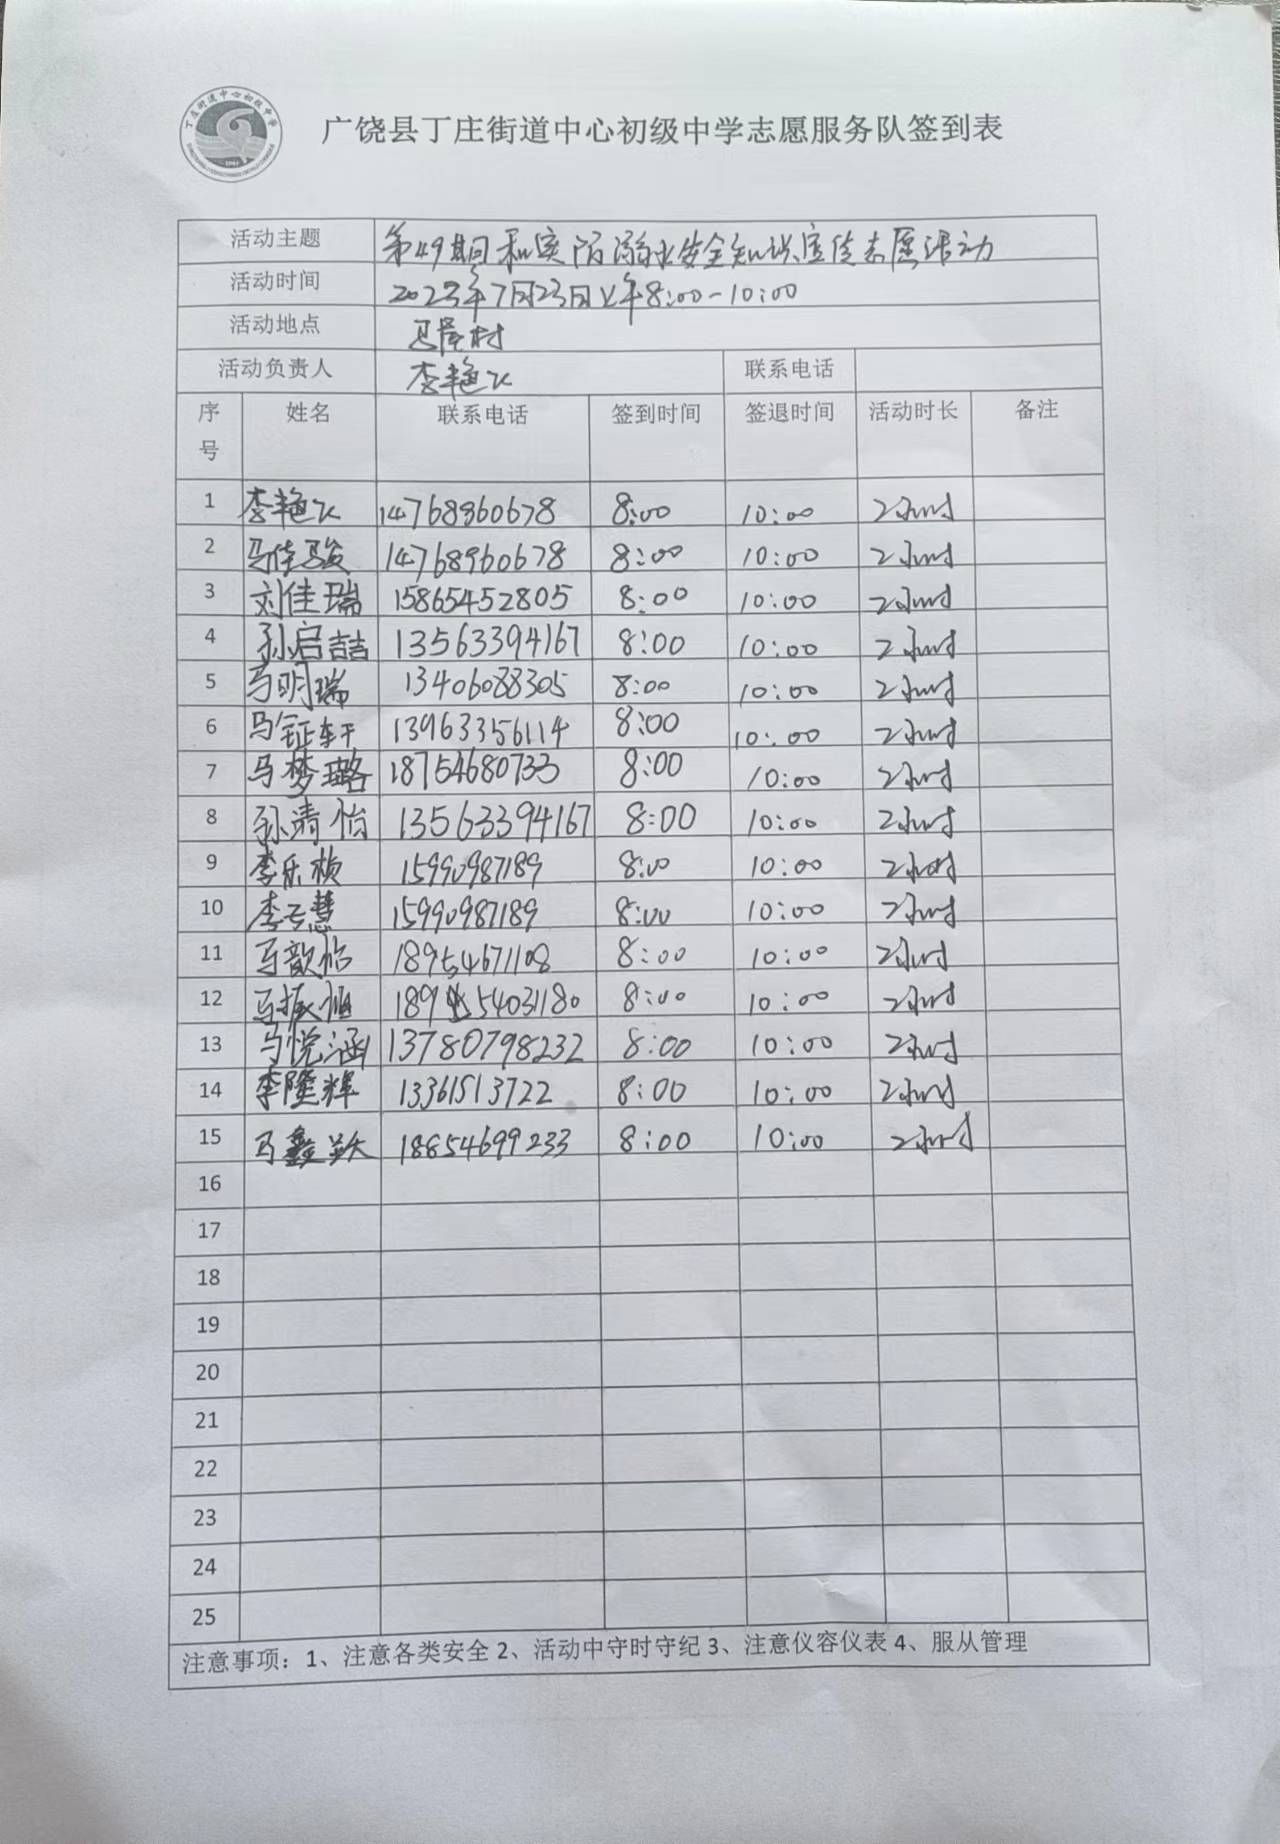 丁庄街道中心初级中学
广饶县丁庄街道中心初级中学志愿服务队签到表
活动主题 第49期和实防溺水安全知识宣传志愿活动
活动时间 2023年7月23日上午8:00-10:00
活动地点 村
活动负责人 李艳飞 联系电话
序号 姓名 联系电话 签到时间 签退时间 活动时长 备注
1 李艳飞 14768960678 8:00 10:00 2小时
2 马佳骏 14768960678 8:00 10:00 2小时
3 刘佳瑞 15865452805 8:00 10:00 2小时
4 孙启喆 13563394167 8:00 10:00 2小时
5 马明瑞 13406088305 8:00 10:00 2小时
6 马钲轩 13963356114 8:00 10:00 2小时
7 马梦璐 18754680733 8:00 10:00 2小时
8 孙清怡 13563394167 8:00 10:00 2小时
9 李乐桢 15990987189 8:00 10:00 2小时
10 李云慧 15990987189 8:00 10:00 2小时
11 马歆怡 18954671108 8:00 10:00 2小时
12 马振恒 8:00 10:00 2小时
13 马悦涵 13780798232 8:00 10:00 2小时
14 李隆辉 13361513722 8:00 10:00 2小时
15 马鑫跃 18654699233 8:00 10:00 2小时
16
17
18
19
20
21
22
23
24
25
注意事项：1、注意各类安全 2、活动中守时守纪 3、注意仪容仪表 4、服从管理